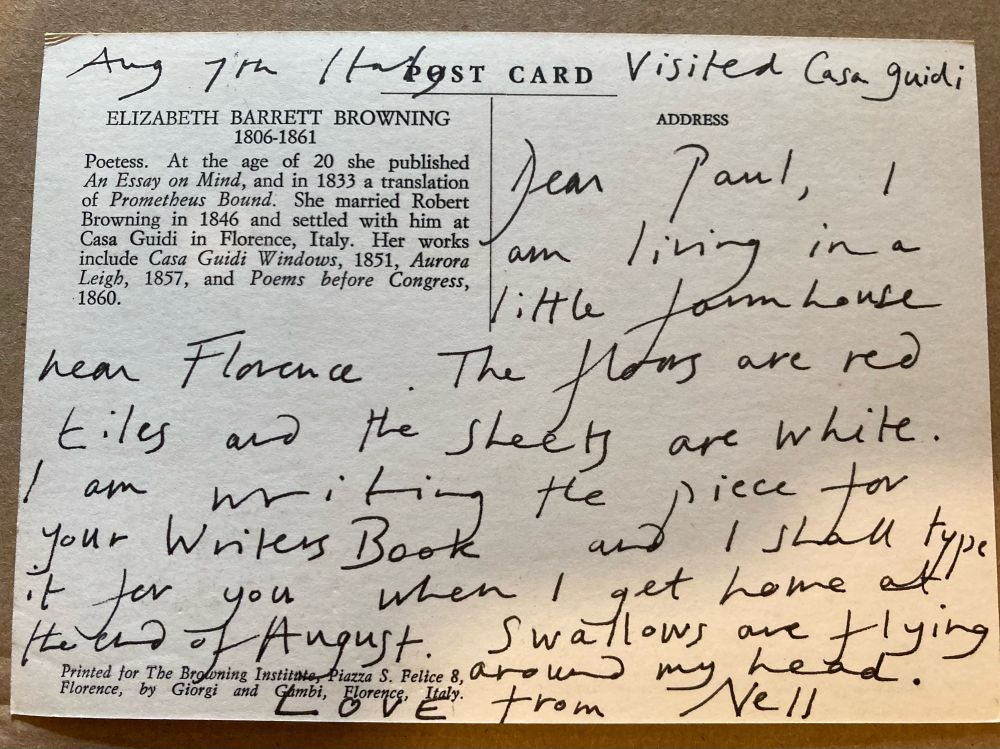 Aug 7th Italy POST CARD Visited Casa Guidi
ELIZABETH BARRETT BROWNING
1806-1861
Poetess. At the age of 20 she published
An Essay on Mind, and in 1833 a translation
of Prometheus Bound. She married Robert
Browning in 1846 and settled with him at
Casa Guidi in Florence, Italy. Her works
include Casa Guidi Windows, 1851, Aurora
Leigh, 1857, and Poems before Congress,
1860.
ADDRESS
Dear Paul, I
am living in a
little farmhouse
near Florence. The floors are red
tiles and the sheets are white.
I am writing the piece for
your Writers Book and I shall type
it for you when I get home at
the end of August. Swallows are flying
around my head.
Love from Nell
Printed for The Browning Institute, Piazza S. Felice 8,
Florence, by Giorgi and Gambi, Florence, Italy.